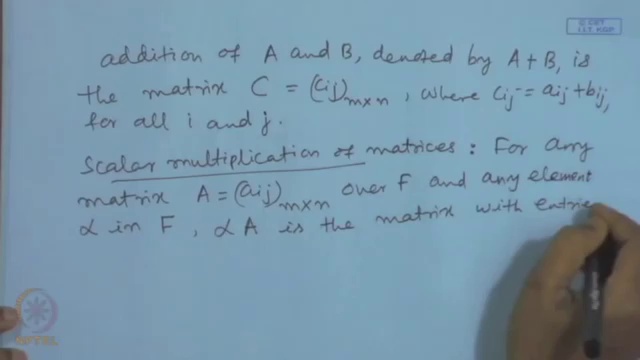 © CET
I.I.T. KGP
addition of A and B, denoted by A+B, is
the matrix C = (cij)m×n, where cij = aij + bij,
for all i and j.
Scalar multiplication of matrices : For any
matrix A = (aij)m×n over F and any element
α in F, αA is the matrix with entrie
NPTEL